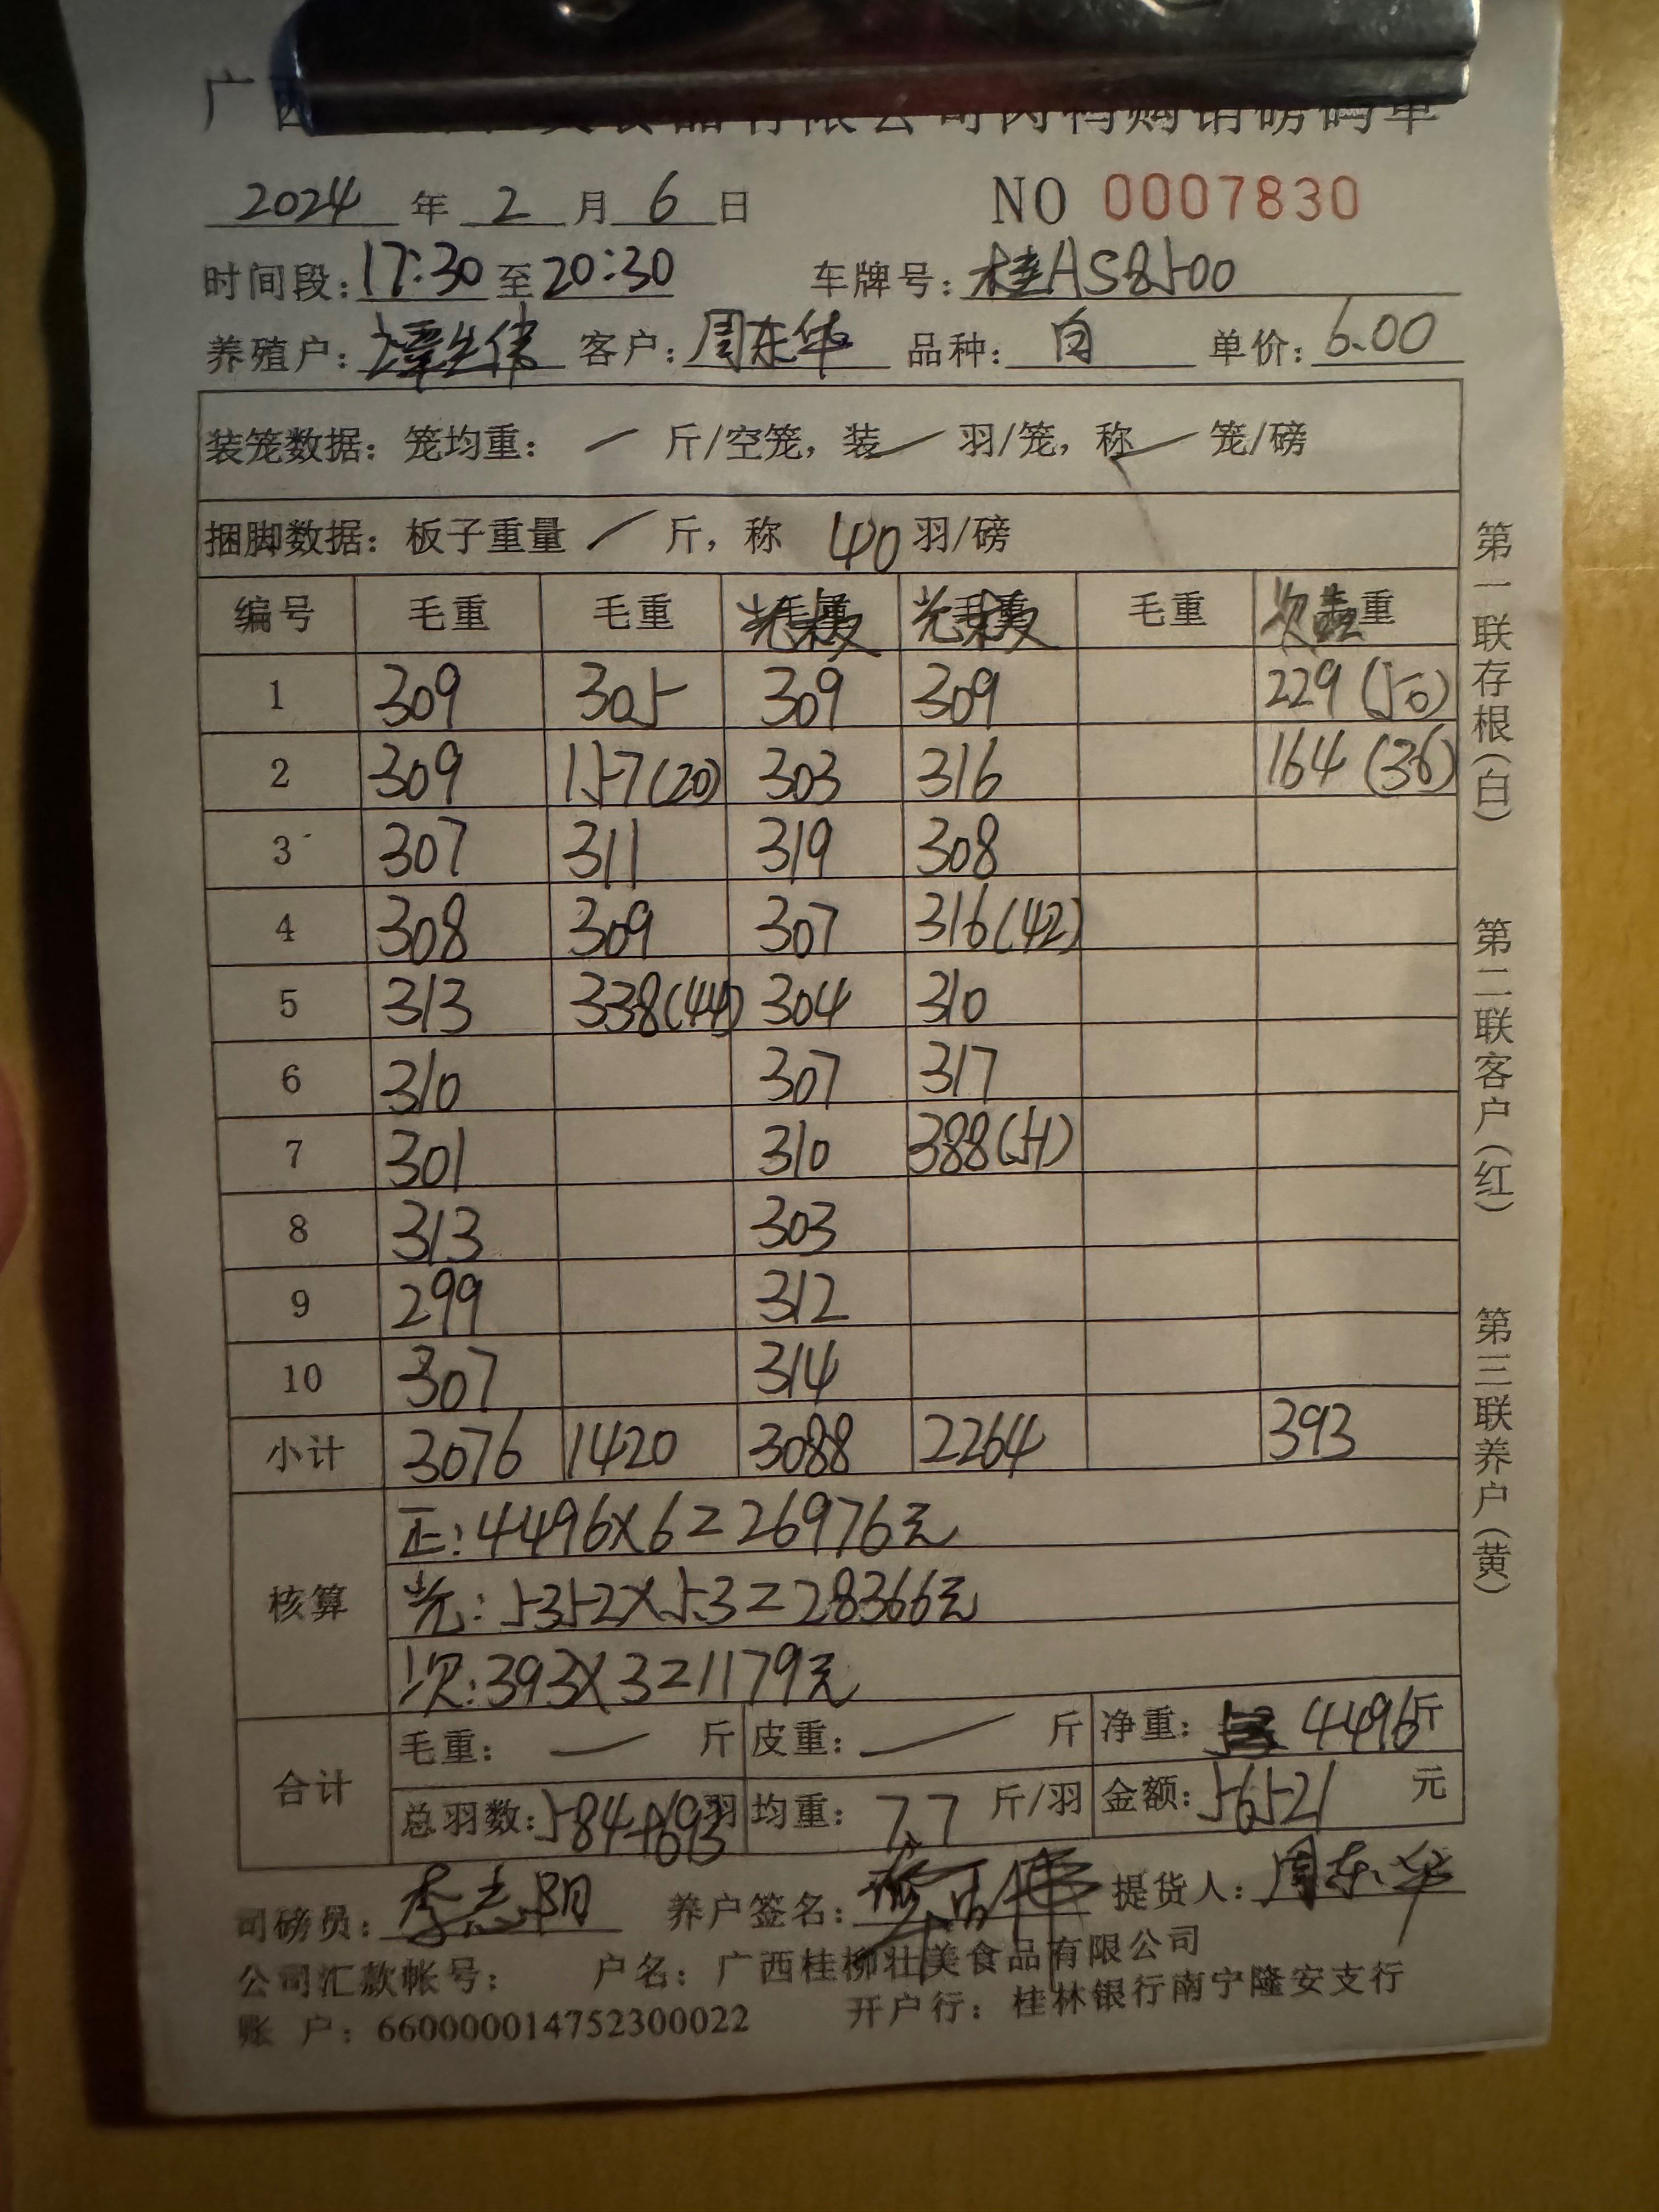 食品有限公司肉鸭购销磅码单
2024 年 2 月 6 日 NO 0007830
时间段:17:30 至 20:30 车牌号:桂AS8500
养殖户: 客户:周东华 品种:白 单价:6.00
装笼数据:笼均重: — 斤/空笼,装 — 羽/笼,称 — 笼/磅
捆脚数据:板子重量 / 斤,称 40 羽/磅
编号 毛重 毛重 毛重
1 309 305 309 309 229(50)
2 309 157(20) 303 316 164(36)
3 307 311 319 308
4 308 309 307 316(42)
5 313 338(44) 304 310
6 310 307 317
7 301 310 388(51)
8 313 303
9 299 312
10 307 314
小计 3076 1420 3088 2264 393
核算
正:4496×6=26976元
光:5352×5.3=28366元
次:393×3=1179元
合计
毛重: — 斤 皮重: — 斤 净重: 4496斤
总羽数:584+693羽 均重:7.7 斤/羽 金额:56521 元
司磅员:李志阳 养户签名: 提货人:周东华
公司汇款帐号: 户名:广西桂柳壮美食品有限公司
账 户:660000014752300022 开户行:桂林银行南宁隆安支行
第一联存根(白)
第二联客户(红)
第三联养户(黄)